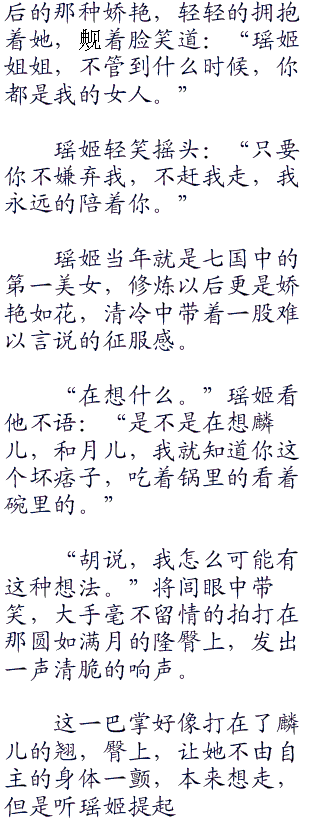 后的那种娇艳，轻轻的拥抱
着她，觍着脸笑道：“瑶姬
姐姐，不管到什么时候，你
都是我的女人。”
瑶姬轻笑摇头：“只要
你不嫌弃我，不赶我走，我
永远的陪着你。”
瑶姬当年就是七国中的
第一美女，修炼以后更是娇
艳如花，清冷中带着一股难
以言说的征服感。
“在想什么。”瑶姬看
他不语：“是不是在想麟
儿，和月儿，我就知道你这
个坏痞子，吃着锅里的看着
碗里的。”
“胡说，我怎么可能有
这种想法。”将闾眼中带
笑，大手毫不留情的拍打在
那圆如满月的隆臀上，发出
一声清脆的响声。
这一巴掌好像打在了麟
儿的翘，臀上，让她不由自
主的身体一颤，本来想走，
但是听瑶姬提起